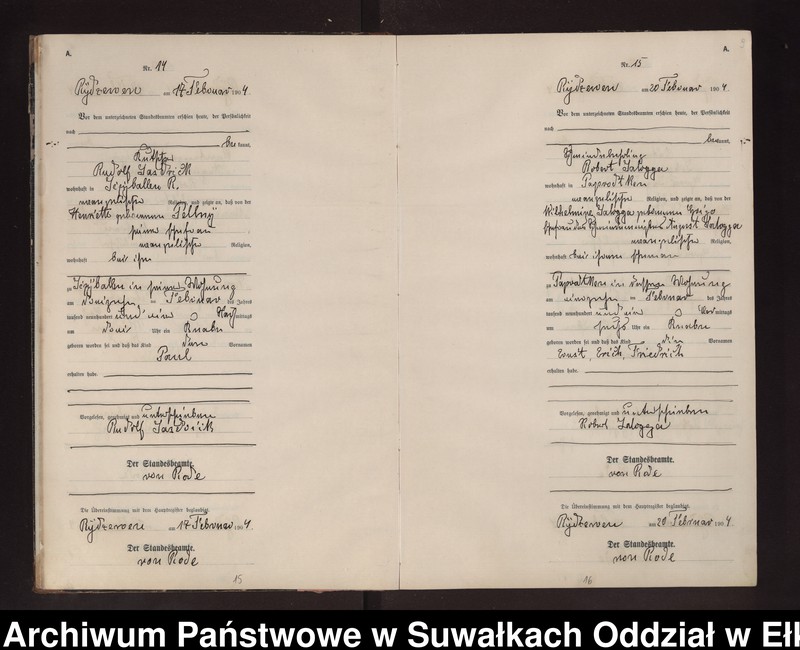 A.
Nr. 14
Rydzewen am 17 Februar 1904.
Vor dem unterzeichneten Standesbeamten erschien heute, der Persönlichkeit
nach
be kannt,
Rudolf
wohnhaft in R.
evangelischer Religion, und zeigte an, daß von der
Henriette geborenen
seiner Ehefrau
evangelischer Religion,
wohnhaft bei ihm
zu in seiner Wohnung
am ten Februar des Jahres
tausend neunhundert und vier Nachmittags
um Uhr ein Knabe
geboren worden sei und daß das Kind den Vornamen
Paul
erhalten habe.
Vorgelesen, genehmigt und unterschrieben
Rudolf
Der Standesbeamte.
von Rode
Die Übereinstimmung mit dem Hauptregister beglaubigt.
Rydzewen am 17 Februar 1904.
Der Standesbeamte.
von Rode
15
A.
Nr. 15
Rydzewen am 20 Februar 1904.
Vor dem unterzeichneten Standesbeamten erschien heute, der Persönlichkeit
nach
bekannt,
Robert
wohnhaft in Paprodtken
evangelischer Religion, und zeigte an, daß von der
Wilhelmine geborenen
Ehefrau des August
evangelischer Religion,
wohnhaft bei ihrem Ehemann
zu Paprodtken in dessen Wohnung
am ten Februar des Jahres
tausend neunhundert und vier Vormittags
um sechs Uhr ein Knabe
geboren worden sei und daß das Kind die Vornamen
Ernst, Erich, Friedrich
erhalten habe.
Vorgelesen, genehmigt und unterschrieben
Robert
Der Standesbeamte.
von Rode
Die Übereinstimmung mit dem Hauptregister beglaubigt.
Rydzewen am 20 Februar 1904.
Der Standesbeamte.
von Rode
16
Archiwum Państwowe w Suwałkach Oddział w Ełk